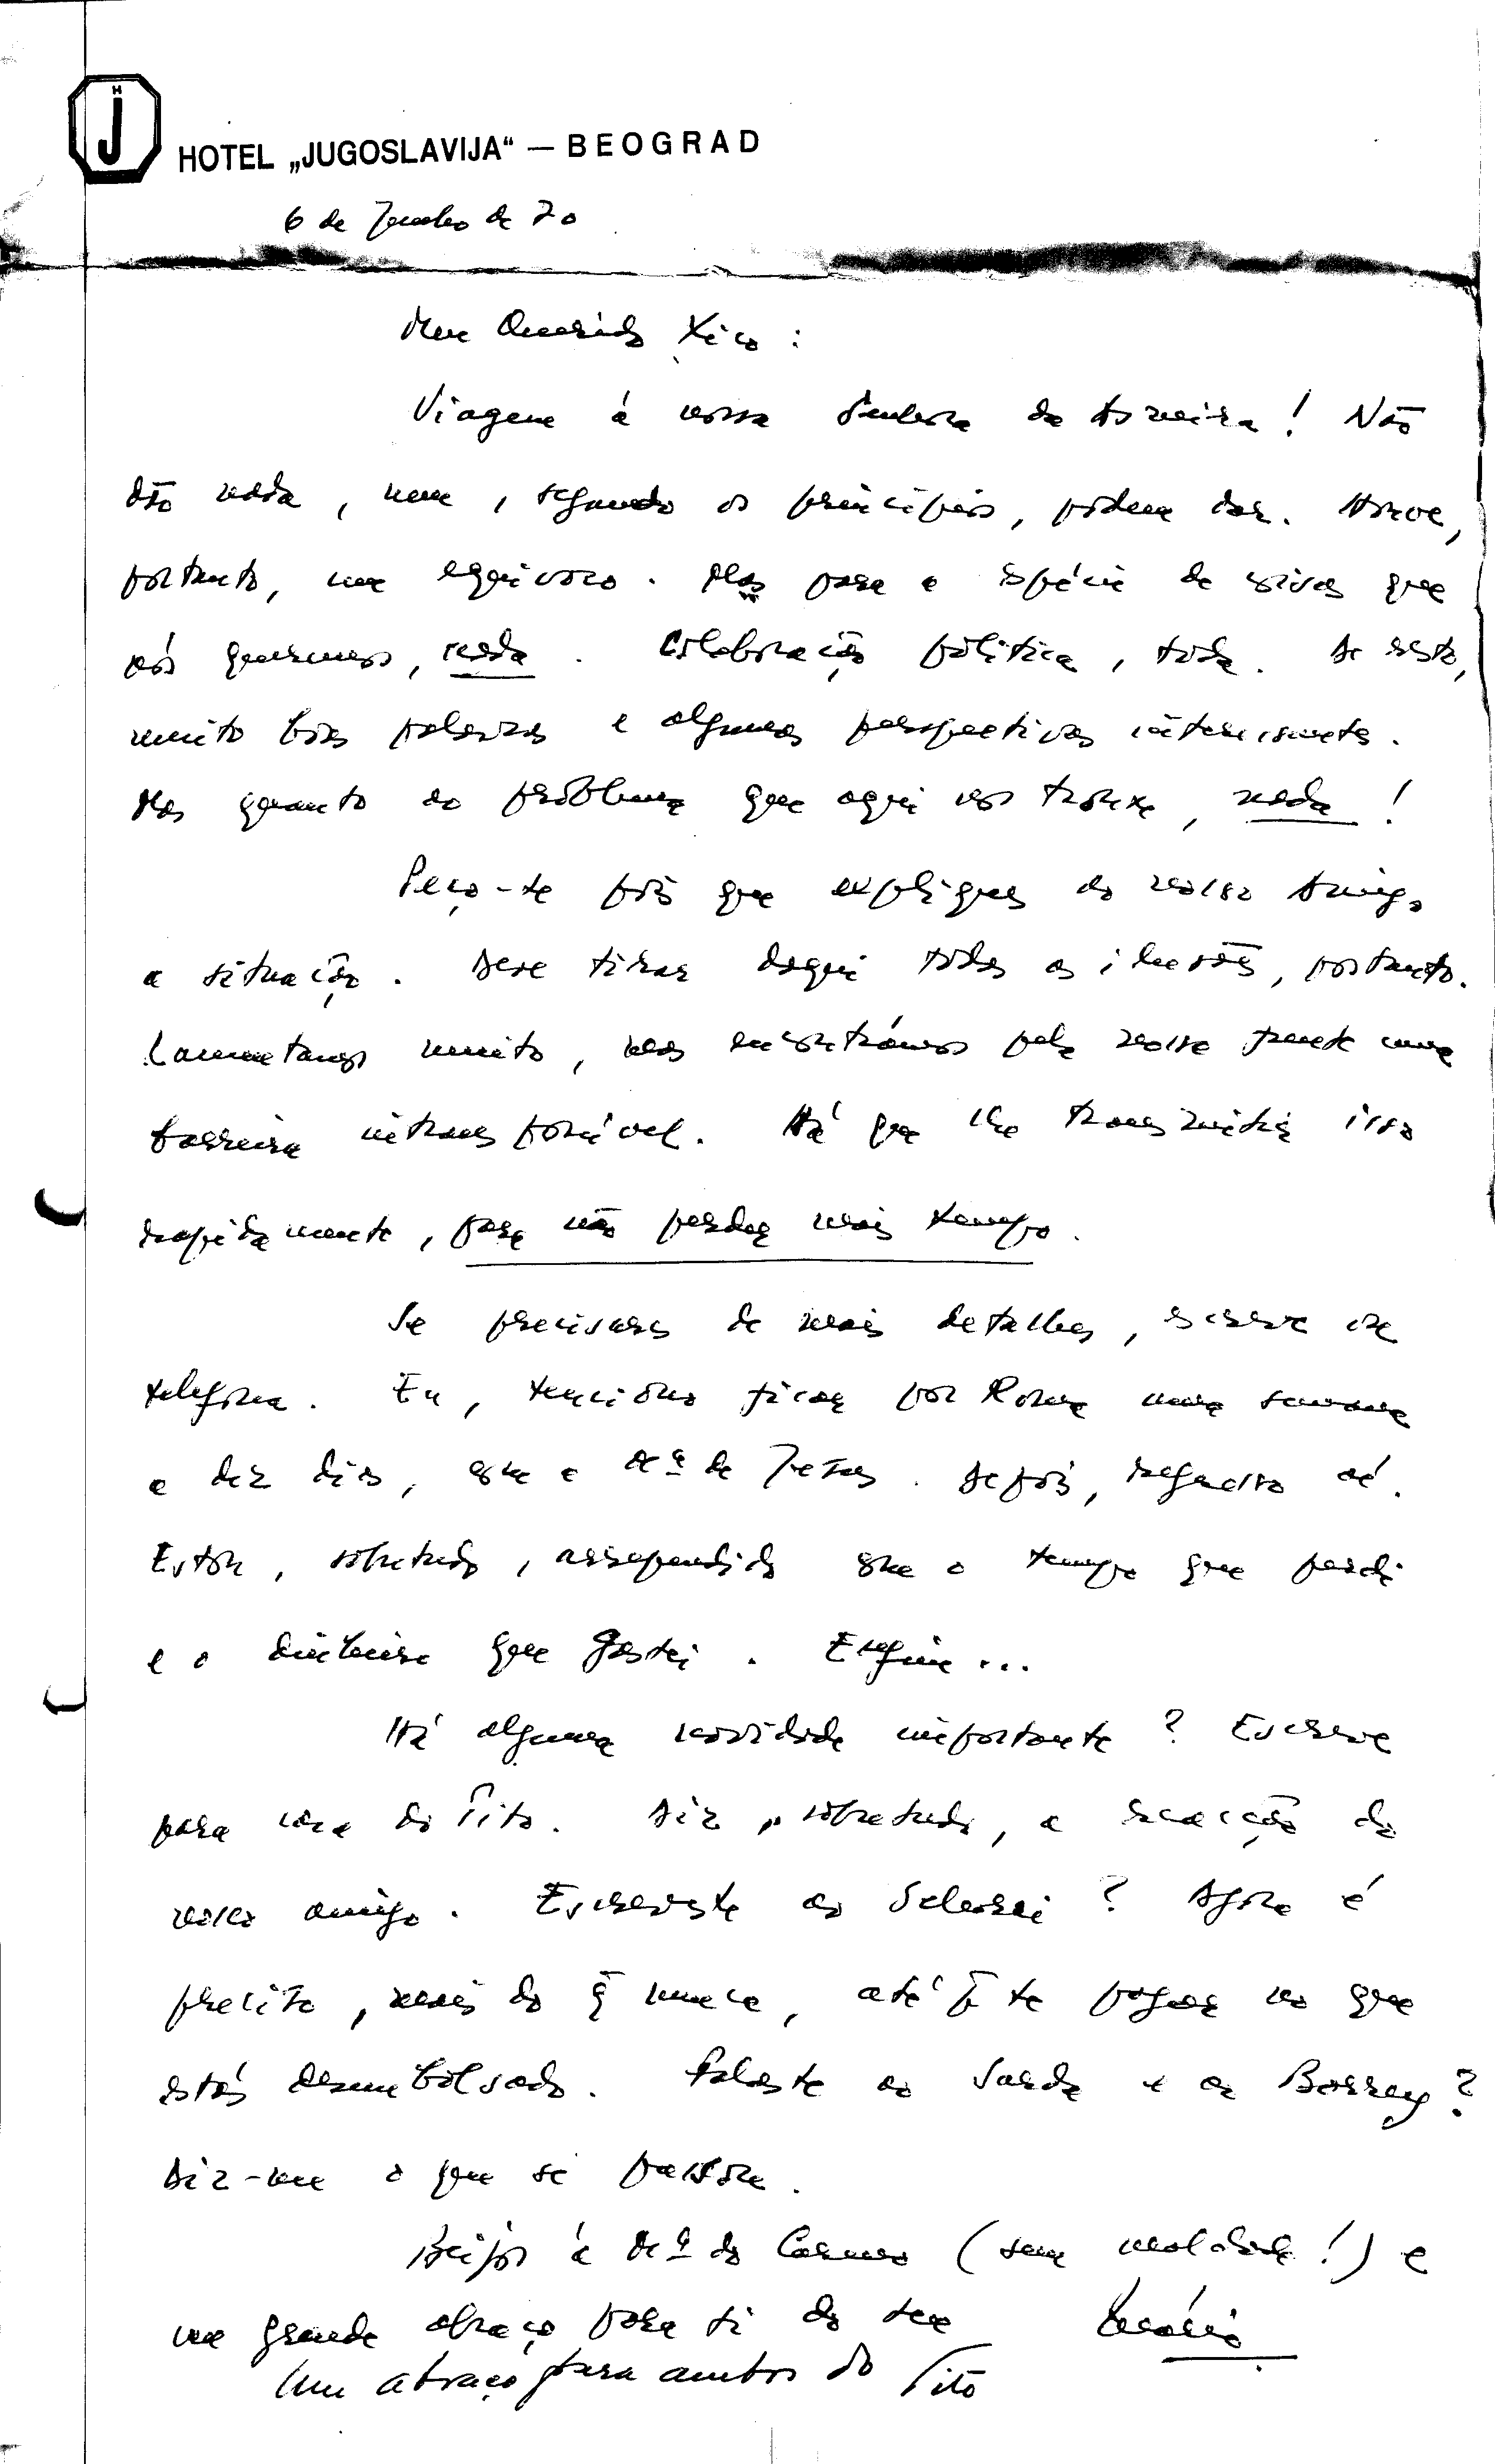 HOTEL „JUGOSLAVIJA“ — BEOGRAD
6 de Junho de 70
Meu Querido Xico:
Viagem à nossa Senhora da Asneira! Não
dão nada, nem, segundo os princípios, podem dar. Houve,
portanto, um equívoco. Mas para a espécie de coisas que
nós queremos, nada. Colaboração política, toda. De resto,
muito boas palavras e algumas perspectivas interessantes.
Mas quanto ao problema que aqui nos trouxe, nada!
Peço-te pois que expliques ao nosso Amigo
a situação. Deve tirar daqui todas as ilusões, portanto.
Lamentamos muito, mas encontrámos pela nossa frente uma
barreira intransponível. Há que lhe transmitir isso
rapidamente, para não perder mais tempo.
Se precisares de mais detalhes, escreve ou
telefona. Eu, tenciono ficar por Roma uma semana
a dez dias, com a Mª de Jesus. Depois, regresso aí.
Estou, sobretudo, arrependido com o tempo que perdi
e o dinheiro que gastei. Enfim...
Há alguma novidade importante? Escreve
para casa do Tito. Diz, sobretudo, a reacção do
nosso amigo. Escreveste ao? Agora é
preciso, mais do q̄ nunca, até p̄ te pagar no que
estás desembolsado. Falaste ao e ao?
Diz-me o que se passou.
Beijos à Mª do Carmo (sem maldade!) e
um grande abraço para ti do teu Mário
Um abraço para ambos do Tito